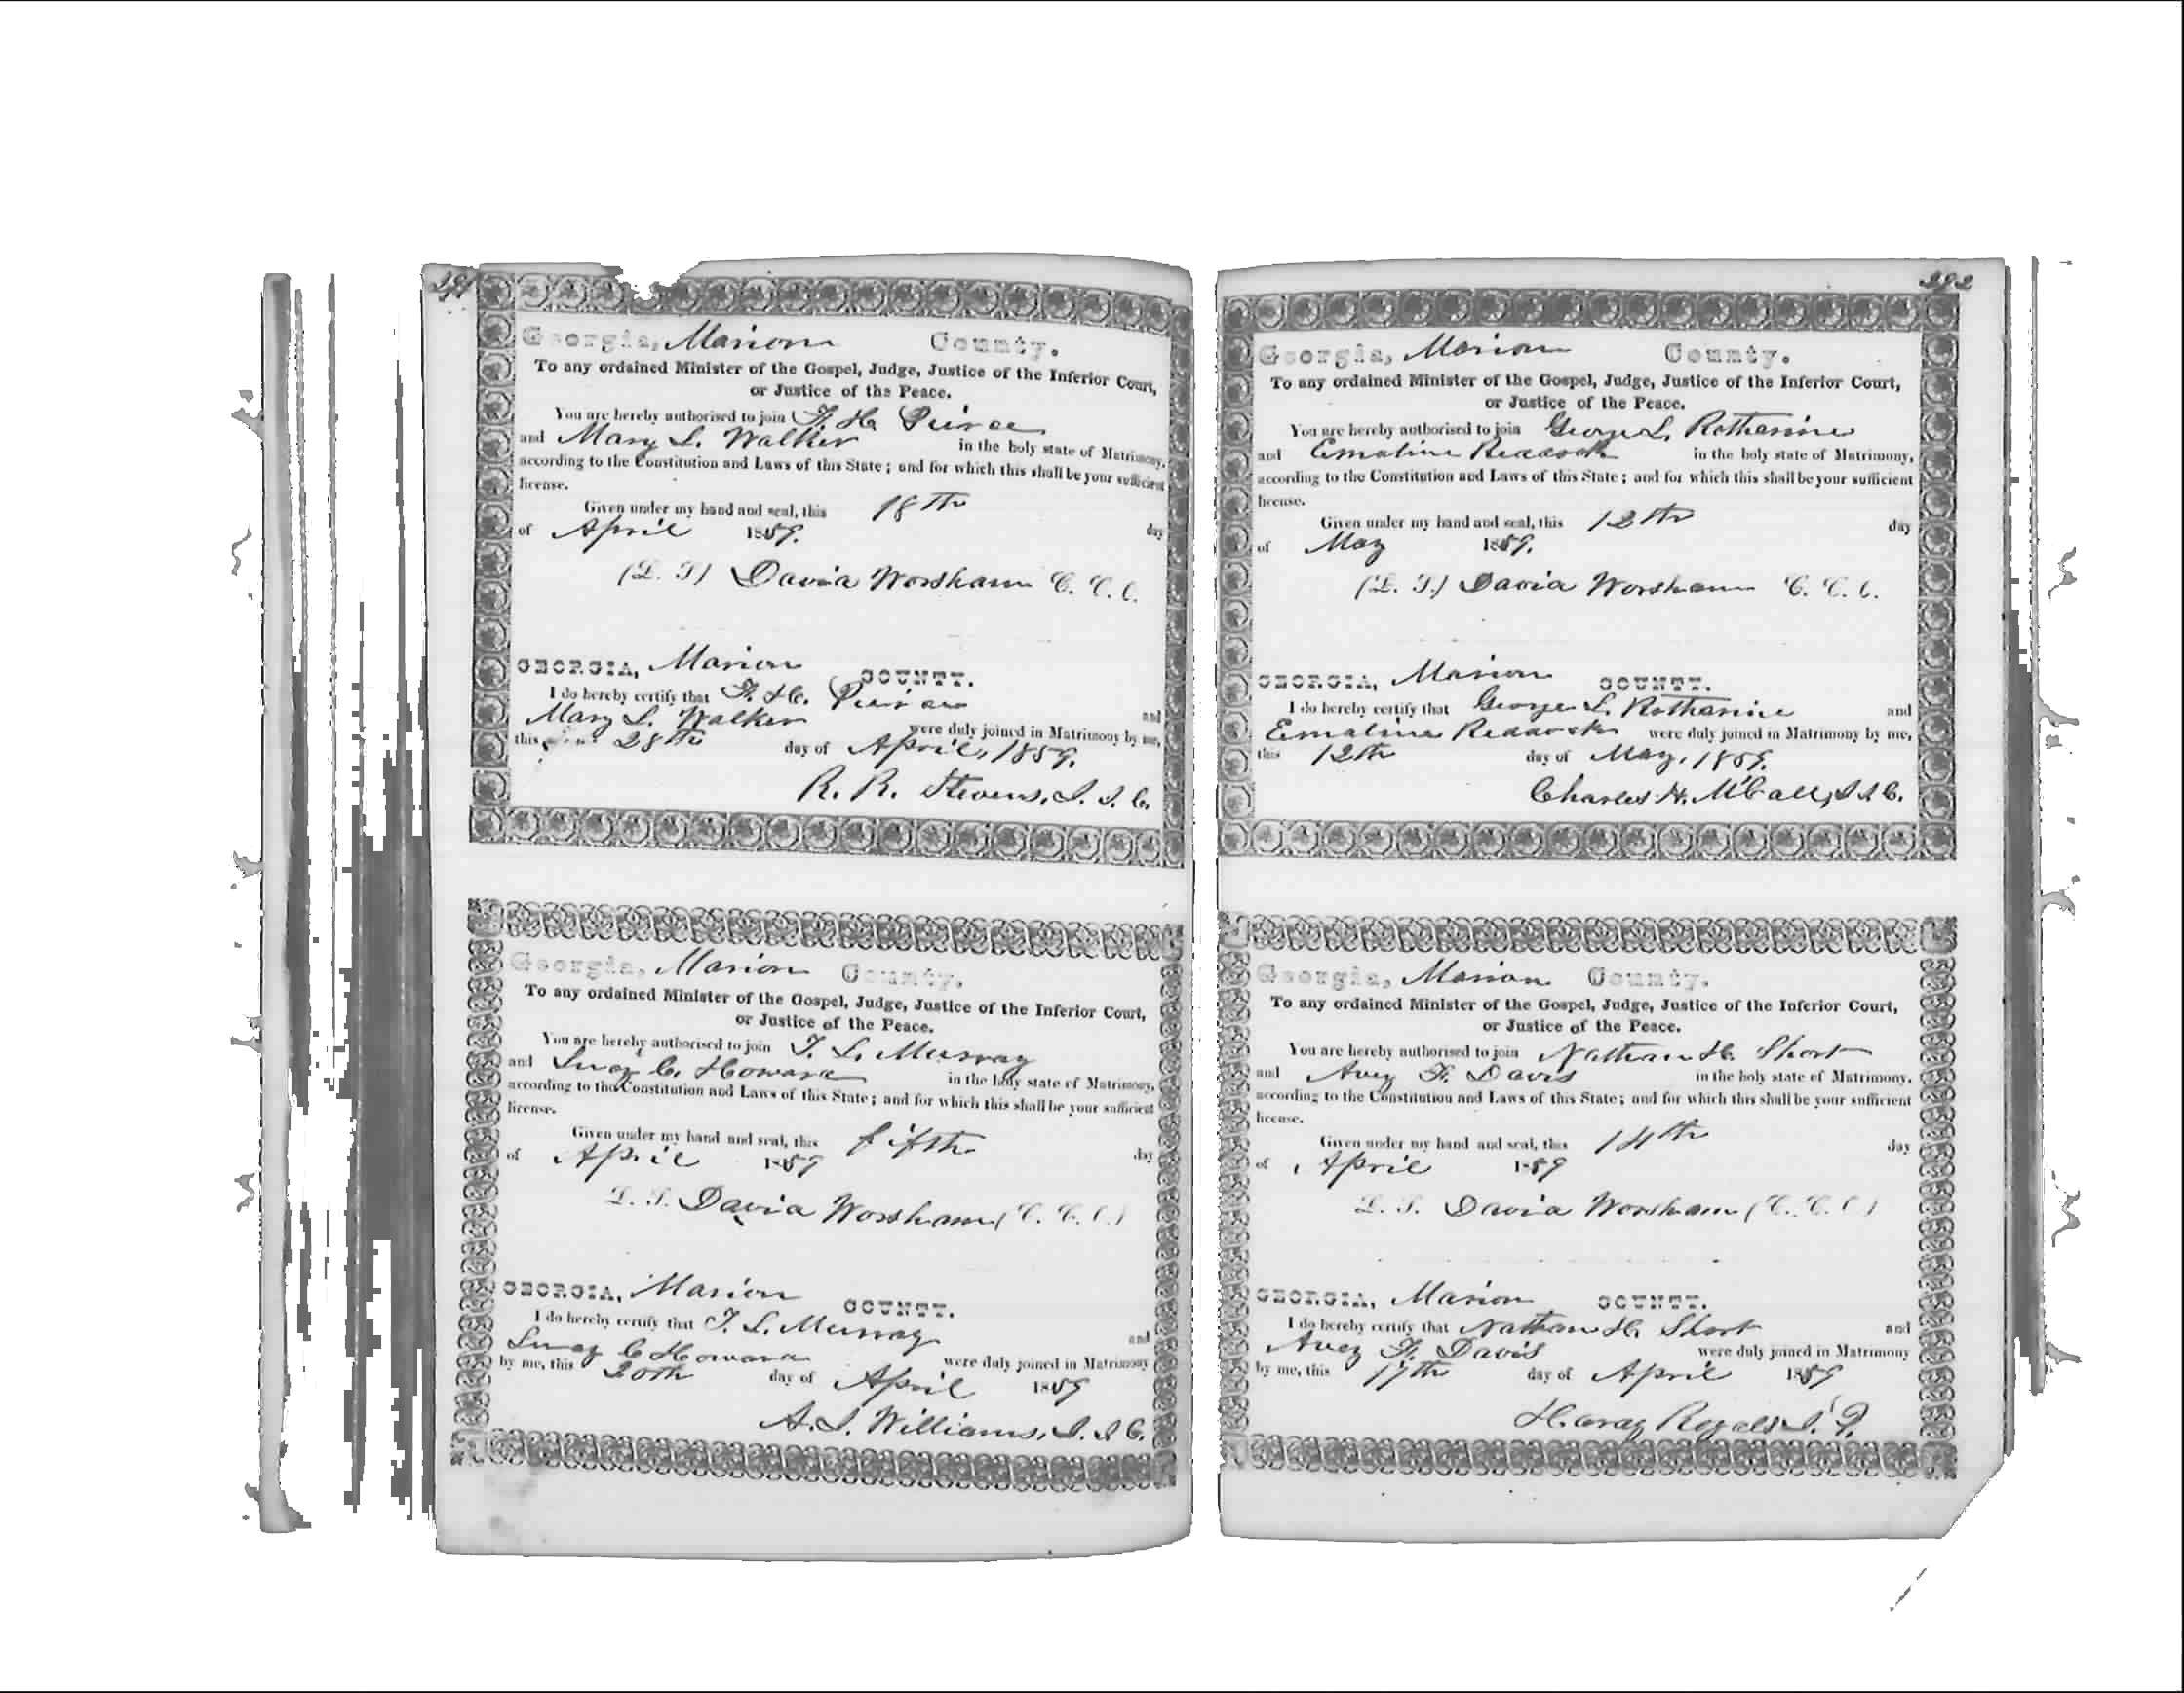 291
Georgia, Marion County.
To any ordained Minister of the Gospel, Judge, Justice of the Inferior Court,
or Justice of the Peace.
You are hereby authorised to join F. H. Peirce
and Mary L. Walker in the holy state of Matrimony,
according to the Constitution and Laws of this State; and for which this shall be your sufficient
license.
Given under my hand and seal, this 18th day
of April 1859.
(L. S) David Worsham C. C. C.
GEORGIA, Marion COUNTY.
I do hereby certify that F. H. Peirce and
Mary L. Walker were duly joined in Matrimony by me,
this 28th day of April, 1859.
R. R. Stevens, J. I. C.
Georgia, Marion County.
To any ordained Minister of the Gospel, Judge, Justice of the Inferior Court,
or Justice of the Peace.
You are hereby authorised to join T. L. Murray
and Lucy C. Howard in the holy state of Matrimony,
according to the Constitution and Laws of this State; and for which this shall be your sufficient
license.
Given under my hand and seal, this fifth day
of April 1859
L. S. David Worsham (C. C. C.)
GEORGIA, Marion COUNTY.
I do hereby certify that T. L. Murray and
Lucy C Howard were duly joined in Matrimony
by me, this 20th day of April 1859
A. J. Williams, J. I. C.
292
Georgia, Marion County.
To any ordained Minister of the Gospel, Judge, Justice of the Inferior Court,
or Justice of the Peace.
You are hereby authorised to join George L. Rotherine
and Emaline Reddock in the holy state of Matrimony,
according to the Constitution and Laws of this State; and for which this shall be your sufficient
license.
Given under my hand and seal, this 12th day
of May 1859.
(L. S.) David Worsham C. C. C.
GEORGIA, Marion COUNTY.
I do hereby certify that George L. Rotherine and
Emaline Reddock were duly joined in Matrimony by me,
this 12th day of May, 1859.
Charles H. McCall, J. I. C.
Georgia, Marion County.
To any ordained Minister of the Gospel, Judge, Justice of the Inferior Court,
or Justice of the Peace.
You are hereby authorised to join Nathan H. Short
and Avey F. Davis in the holy state of Matrimony,
according to the Constitution and Laws of this State; and for which this shall be your sufficient
license.
Given under my hand and seal, this 14th day
of April 1859
L. S. David Worsham (C. C. C.)
GEORGIA, Marion COUNTY.
I do hereby certify that Nathan H. Short and
Avey F. Davis were duly joined in Matrimony
by me, this 17th day of April 1859
Royals J. P.